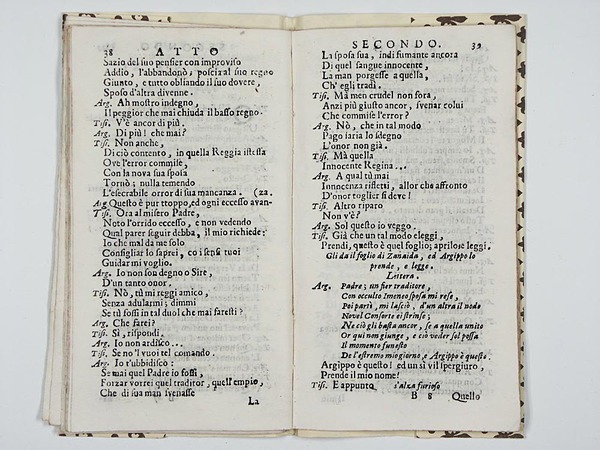 38 ATTO
Sazio del suo pensier con improviso
Addio, l'abbandonò; poscia al suo regno
Giunto, e tutto obliando il suo dovere,
Sposo d'altra divenne.
Arg. Ah mostro indegno,
Il peggior che mai chiuda il basso regno.
Tisi. V'è ancor di più.
Arg. Di più! che mai?
Tisi. Non anche,
Di ciò contento, in quella Reggia istessa
Ove l'error commise,
Con la nova sua sposa
Tornò; nulla temendo
L'esecrabile orror di sua mancanza. (za.
Arg Questo è pur troppo, ed ogni eccesso avan-
Tisi. Ora al misero Padre,
Noto l'orrido eccesso, e non vedendo
Qual parer seguir debba, il mio richiede;
Io che mal da me solo
Consigliar lo saprei, co i sensi tuoi
Guidar mi voglio.
Arg. Io non son degno o Sire,
D'un tanto onor.
Tisi. Nò, tù mi reggi amico,
Senza adularmi; dimmi
Se tù fossi in tal duol che mai faresti?
Arg. Che farei?
Tisi. Si, rispondi.
Arg. Io non ardisco...
Tisi. Se no'l vuoi tel comando.
Arg. Io t'ubbidisco:
Se mai quel Padre io fossi,
Forzar vorrei quel traditor, quell'empio,
Che di sua man svenasse
La
SECONDO. 39
La sposa sua, indi fumante ancora
Di quel sangue innocente,
La man porgesse a quella,
Ch' egli tradì.
Tisi. Mà men crudel non fora,
Anzi più giusto ancor, svenar colui
Che commise l'error?
Arg. Nò, che in tal modo
Pago saria lo sdegno
L'onor non già.
Tisi. Mà quella
Innocente Regina...
Arg. A qual tù mai
Innocenza rifletti, allor che affronto
D'onor toglier si deve!
Tisi. Altro riparo
Non v'è?
Arg. Sol questo io veggo.
Tisi. Già che un tal modo eleggi,
Prendi, questo è quel foglio; aprilo e leggi.
Gli da il foglio di Zanaida, ed Argippo lo
prende, e legge.
Lettera.
Arg. Padre; un fier traditore,
Con occulto Imeneo sposa mi rese,
Poi partì, mi lasciò, d'un altra il nodo
Novel Consorte ei strinse;
Ne ciò gli basta ancor, se a quella unito
Or qui non giunge, e ciò veder sol possa
Il momento funesto
De l'estremo mio giorno, e Argippo è questo.
Argippo è questo! ed un sì vil spergiuro,
Prende il mio nome!
Tisi. E appunto s'alza furioso
B 8 Quello